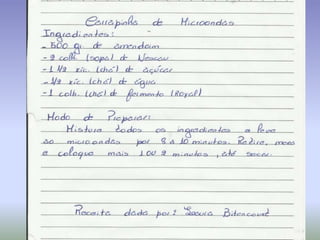 Carrapinha de Microondas
Ingredientes:
- 500 g. de amendoim
- 2 colh. (sopa) de Nescau
- 1 1/2 xíc. (chá) de açúcar
- 1/2 xíc. (chá) de água
- 1 colh. (chá) de fermento (Royal)
Modo de Preparar:
Mistura todos os ingredientes e leva
ao microondas por 8 a 10 minutos. Retire, mexa
e coloque mais 1 ou 2 minutos, até secar.
Receita dada por: Bitencourt